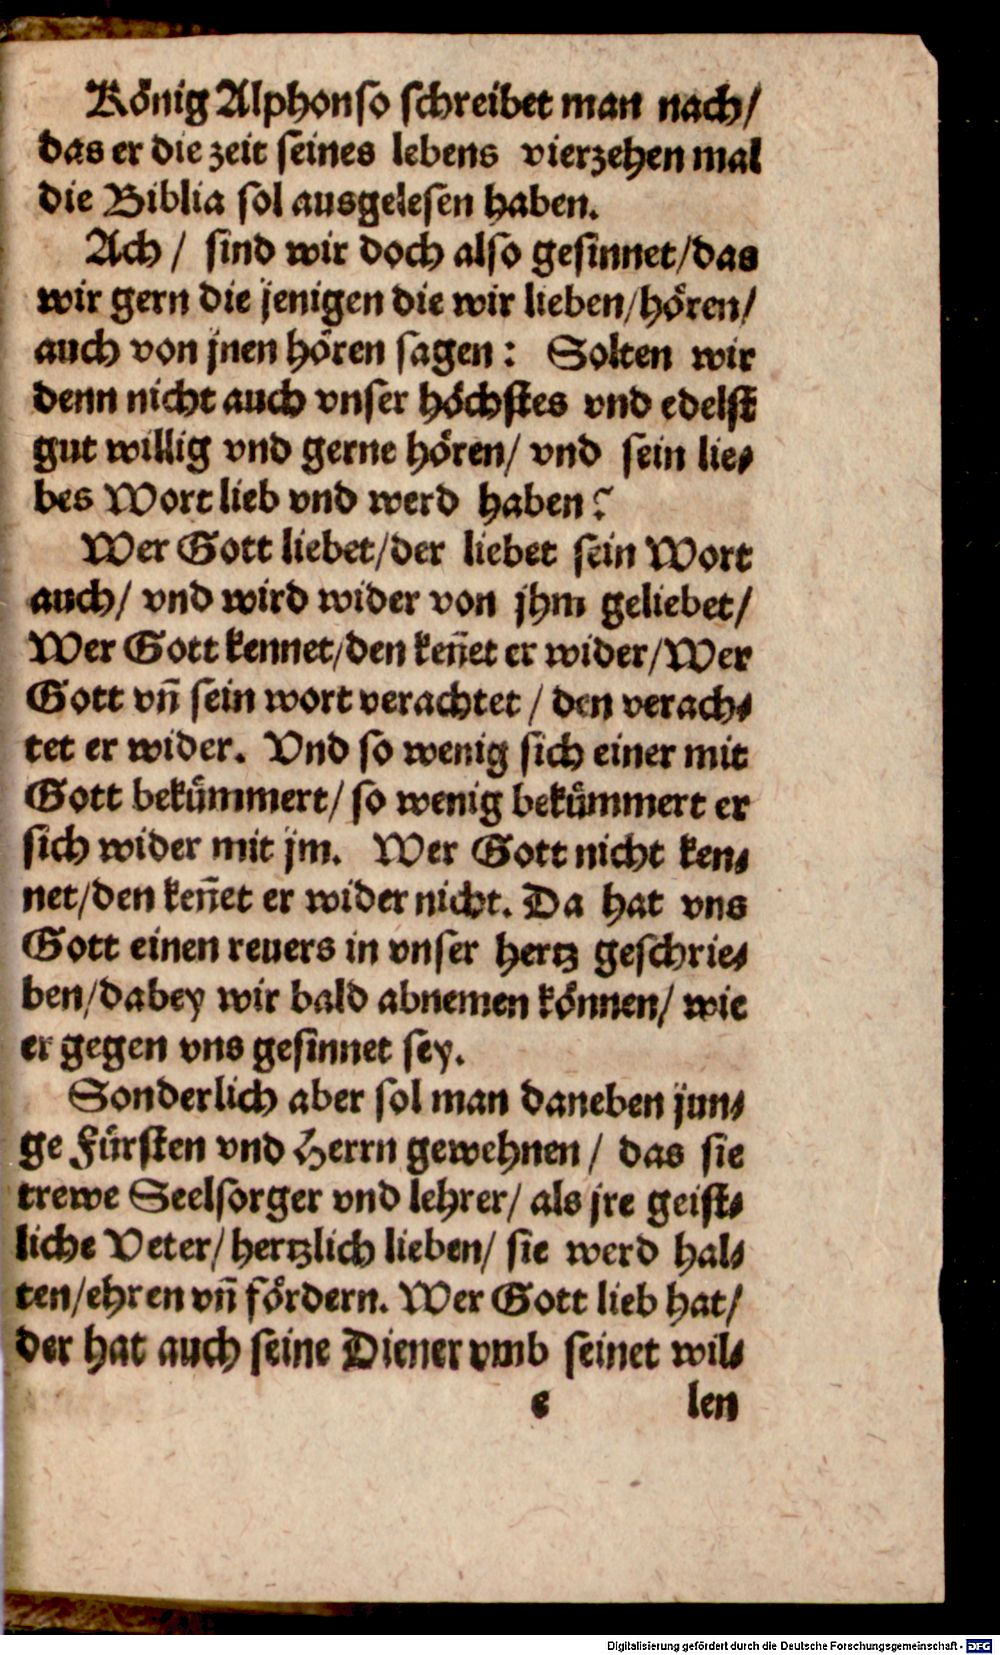 König Alphonso schreibet man nach/
das er die zeit seines lebens vierzehen mal
die Biblia sol ausgelesen haben.
Ach/ sind wir doch also gesinnet/das
wir gern die jenigen die wir lieben/hören/
auch von jnen hören sagen: Solten wir
denn nicht auch vnser höchstes vnd edelst
gut willig vnd gerne hören/ vnd sein lie⸗
bes Wort lieb vnd werd haben?
Wer Gott liebet/der liebet sein Wort
auch/ vnd wird wider von jhm geliebet/
Wer Gott kennet/den keñet er wider/Wer
Gott vñ sein wort verachtet / den verach⸗
tet er wider. Vnd so wenig sich einer mit
Gott bekümmert/ so wenig bekümmert er
sich wider mit jm. Wer Gott nicht ken⸗
net/den keñet er wider nicht. Da hat vns
Gott einen reuers in vnser hertz geschrie⸗
ben/dabey wir bald abnemen können/ wie
er gegen vns gesinnet sey.
Sonderlich aber sol man daneben jun⸗
ge Fürsten vnd Herrn gewehnen / das sie
trewe Seelsorger vnd lehrer/ als jre geist⸗
liche Veter/ hertzlich lieben/ sie werd hal⸗
ten/ehren vñ fördern. Wer Gott lieb hat/
der hat auch seine Diener vmb seinet wil⸗
e len
Digitalisierung gefördert durch die Deutsche Forschungsgemeinschaft - DFG